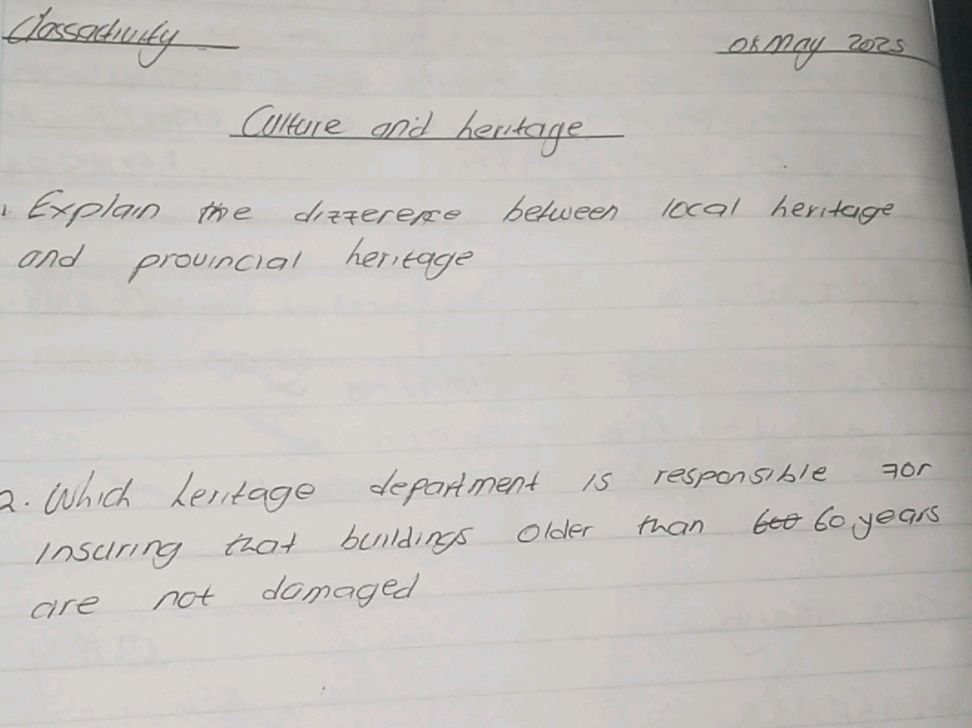 Classactivity
08 May 2025
Culture and heritage
1. Explain the difference between local heritage
and provincial heritage
2. Which heritage department is responsible for
Insuring that buildings older than 600 60 years
are not damaged